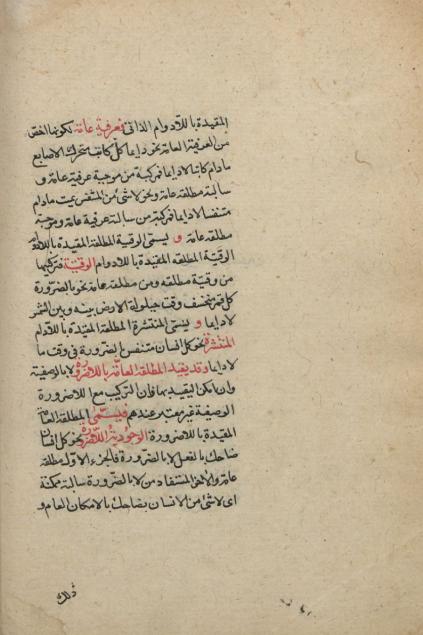 المقيدة باللادوام الذاتى فعرفية عامة لكونها اخص
من العرفية العامة نحو دايما كل كاتب متحرك الاصابع
مادام كاتبا لا دايما فمركبة من موجبة عرفية عامة و
سالبة مطلقة عامة ونحو لا شئ من المتنفس بميت مادام
متنفسا لا دايما فمركبة من سالبة عرفية عامة وموجبة
مطلقة عامة و يسمى الوقتية المطلقة المقيدة باللادوام
الوقتية المطلقه المقيدة باللادوام الوقتية فتركيبها
من وقتية مطلقه ومن مطلقة عامة نحو بالضرورة
كل قمر منخسف وقت حيلولة الارض بينه وبين الشمس
لا دايما و يسمى المنتشرة المطلقة المقيدة باللادوام
المنتشرة نحو كل انسان متنفس بالضرورة فى وقت ما
لا دايما وقد يقيد المطلقة العامة باللاضرورة لا بالوصفية
وان امكن التقييد بها فان التركيب مع اللاضرورة
الوصفية غير معتبر عندهم فيسمى المطلقة العامة
المقيدة باللاضرورة الوجودية اللاضرورة نحو كل انسان
ضاحك بالفعل لا بالضرورة فالجزء الاول مطلقة
عامة والآخر المستفاد من لا بالضرورة سالبة ممكنة
اى لا شئ من الانسان بضاحك بالامكان العام و
ذلك